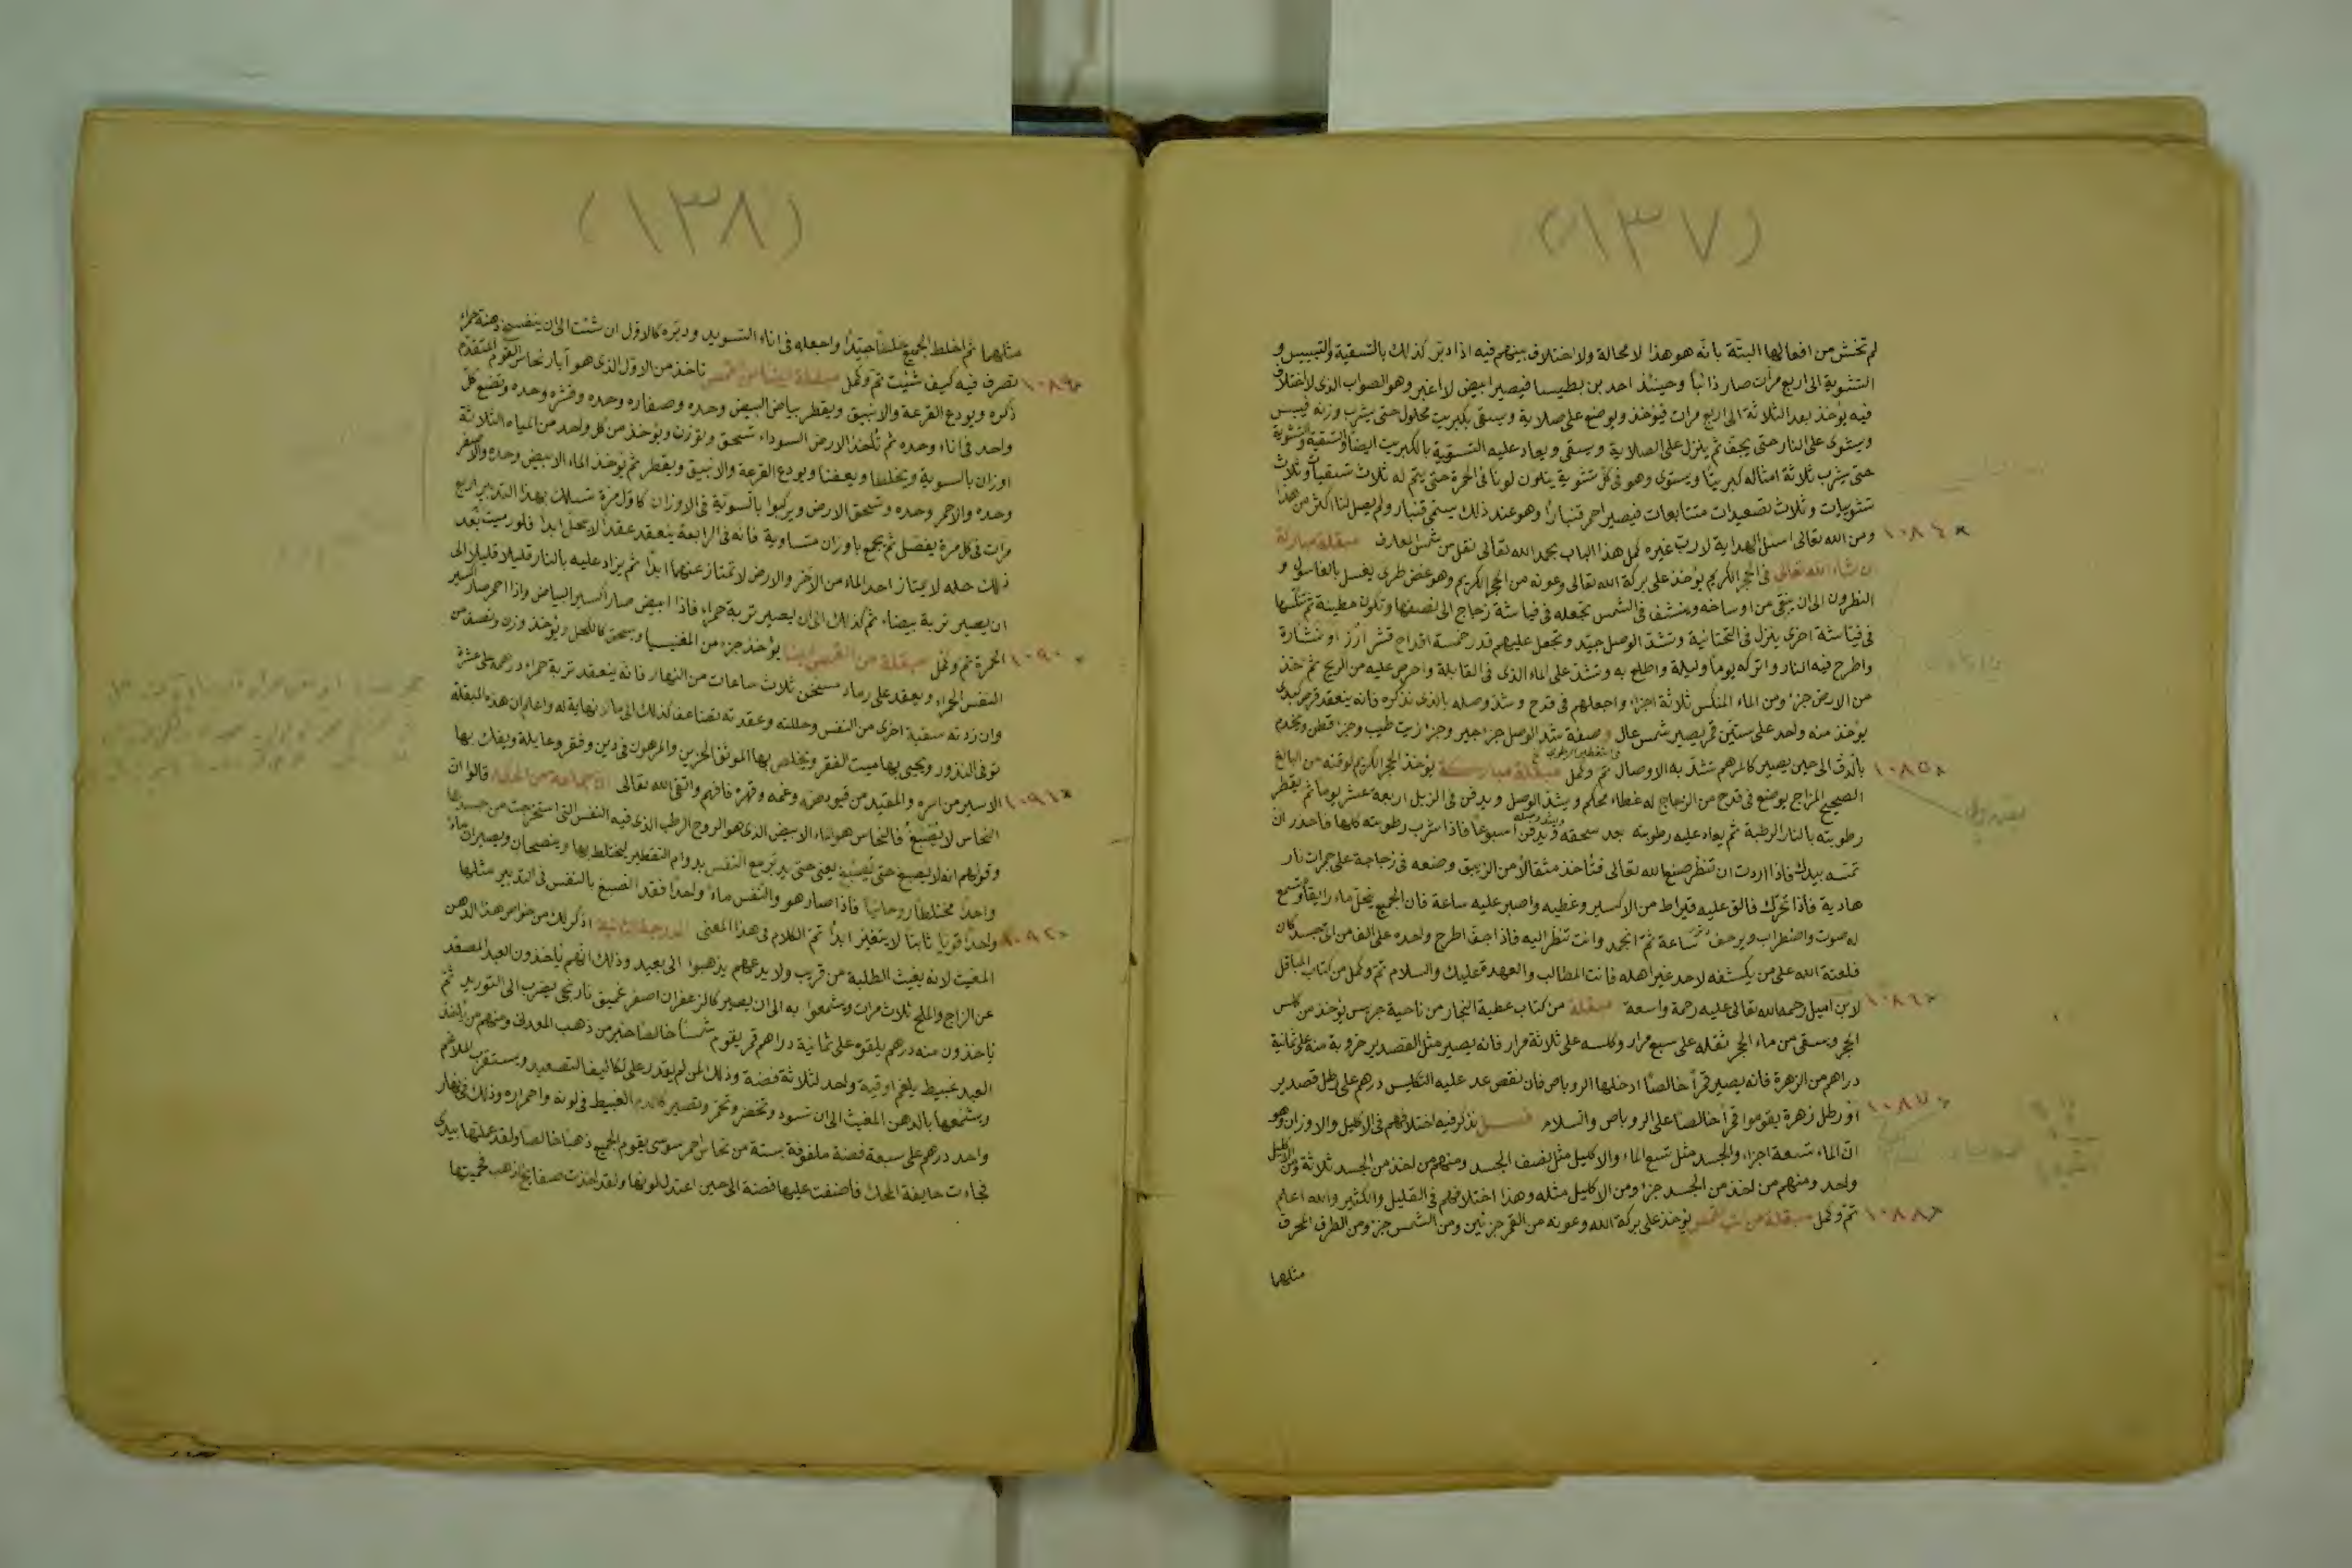 (١٣٧)
لم تخش من افعالها البتة بانه هو هذا لا محالة ولا اختلاف بينهم فيه اذا دبر كذلك بالتسقية والتيبيس و
التشوية الى اربع مرات صار ذائبا وحينئذ فيصير ابيض لا اغبر وهو الصواب الذى لا اختلاف
فيه يؤخذ بعد الثلاثة الى اربع مرات فيؤخذ ويوضع على صلاية ويسقى بكبريت محلول حتى يشرب وزنه فيبس
ويشوى على النار حتى يجف ثم ينزل على الصلاية ويسقى ويعاد عليه التسقية بالكبريت ايضا والتسقية والتشوية
حتى يشرب ثلاثة امثاله كبريتا ويستوى وهو فى كل تشوية يتلون لونا فى الحمرة حتى يتم له ثلاث تسقيات وثلاث
تشويات وثلاث تصعيدات متتابعات فيصير احمر قنبارا وهو عند ذلك يسمى قنبار ولم يصل لنا اكثر من هذا
١٠٨٤ ومن الله تعالى اسئل الهداية لا رب غيره كمل هذا الباب بحمد الله تعالى نقل من شمس المعارف مبقلة مباركة
ان شاء الله تعالى فى الحجر الكريم يؤخذ على بركة الله تعالى وعونه من الحجر الكريم وهو غض طرى يغسل بالغاسول و
النطرون الى ان ينقى من اوساخه وينشف فى الشمس تجعله فى فياشة زجاج الى نصفها وتكون مطينة ثم تنكسها
فى فياشة اخرى ينزل فى التحتانية وتشد الوصل جيد وتجعل عليهم قدر خمسة اقداح قشر ارز او نشارة
واطرح فيه النار واتركه يوما وليلة واطلع به وتشد على الماء الذى فى القابلة واحرص عليه من الريح ثم خذ
من الارض جزء ومن الماء المنكس ثلاثة اجزاء واجعلهم فى قدح وشد وصله بالذى نذكره فانه ينعقد قرص كبدى
يؤخذ منه واحد على ستين قمر يصير شمس عال وصفة شد الوصل جزء جير وجزء زيت طيب وجزء قطن ويخدم
١٠٨٥ بالدق الى حين يصير كالمرهم تشد به الاوصال تم وكمل مبقلة مباركة يؤخذ الحجر الكريم لوقته من البالغ
الصحيح المزاج يوضع فى قدح من الزجاج له غطاء محكم ويشد الوصل ويدفن فى الزبل اربعة عشر يوما ثم يقطر
رطوبته بالنار الرطبة ثم يعاد عليه رطوبته بعد سحقه ويدفن اسبوعا فاذا شرب رطوبته كلها فاحذر ان
تمسه بيدك فاذا اردت ان تنظر صنع الله تعالى فتأخذ مثقالا من الزيبق وضعه فى زجاجة على جمرات نار
هادية فاذا تحرك فالق عليه قيراط من الاكسير وغطيه واصبر عليه ساعة فان الجميع ينحل ماء رايقا وتسمع
له صوت واضطراب ويرجف ساعة ثم انجمد وانت تنظر اليه فاذا اجف اطرح واحده على الف من اى جسد كان
فلعنة الله على من يكشفه لاحد غير اهله فانت المطالب والعهدة عليك والسلام تم وكمل من كتاب المباقل
١٠٨٦ لابن اميل رحمه الله تعالى عليه رحمة واسعة مبقلة من كتاب عطية النجار من ناحية جرجس يؤخذ من كلس
الحجر ويسقى من ماء الحجر ثقله على سبع مرار وكلسه على ثلاثة مرار فانه يصير مثل القصدير خروبة منه على ثمانية
دراهم من الزهرة فانه يصير قمرا خالصا ادخلها الروباص فان نقص عد عليه التكليس درهم على رطل قصدير
١٠٨٧ او رطل زهرة يقوموا قمرا خالصا على الروباص والسلام فصل نذكر فيه اختلافهم فى الاكليل والاوزان وهو
ان الماء تسعة اجزاء والجسد مثل تسع الماء والاكليل مثل نصف الجسد ومنهم من اخذ من الجسد ثلاثة ومن الاكليل
واحد ومنهم من اخذ من الجسد جزء ومن الاكليل مثله وهذا اختلافهم فى القليل والكثير والله اعلم
١٠٨٨ تم وكمل مبقلة يؤخذ على بركة الله وعونه من القمر جزئين ومن الشمس جزء ومن الطرف المحرق
مثلهما
(١٣٨)
مثلهما ثم اخلط الجميع خلطا جيدا واجعله فى اناء التسويد ودبره كالاول ان شئت الى ان ينفسخ دهنة حمراء
١٠٨٩ تصرف فيه كيف شئت تم وكمل مبقلة تاخذ من الاول الذى هو آبار نحاس القوم المتقدم
ذكره ويودع القرعة والانبيق ويقطر بياض البيض وحده وصفاره وحده وقشره وحده وتضع كل
واحد فى اناء وحده ثم تأخذ الارض السوداء تسحق وتوزن ويؤخذ من كل واحد من المياه الثلاثة
اوزان بالسوية ويخلطا ويعفنا ويودع القرعة والانبيق ويقطر ثم يؤخذ الماء الابيض وحده والاصفر
وحده والاحمر وحده وتسحق الارض ويركبوا بالسوية فى الاوزان كاول مرة تسلك بهذا التدبير اربع
مرات فى كل مرة يفصل ثم يجمع باوزان متساوية فانه فى الرابعة ينعقد عقدا لا ينحل ابدا فلو رميت بعد
ذلك حله لا يمتاز احد الماء من الآخر والارض لا تمتاز عنهما ابدا ثم يزاد عليه بالنار قليلا قليلا الى
ان يصير تربة بيضاء ثم كذلك الى ان يصير تربة حمراء فاذا ابيض صار اكسير البياض واذا احمر صار اكسير
١٠٩٠ الحمرة تم وكمل مبقلة من ايضا يؤخذ جزء من المغنيسيا ويسحق كالكحل ويؤخذ وزن ونصف من
النفس الحمراء ويعقد على رماد مسخن ثلاث ساعات من النهار فانه ينعقد تربة حمراء درهمه على عشرة
وان زدته سقية اخرى من النفس وحللته وعقدته تضاعف كذلك الى ما لا نهاية له واعلم ان هذه المبقلة
توفى النذور ويحيى بها ميت الفقر ويخلص بها الموثق الحزين والمرهون فى دين وفقر وعايلة ويفك بها
١٠٩١ الاسير من اسره والمقيد من قيوده وغمه وقهره فافهم واتقى الله تعالى جماعة من الحكماء قالوا ان
النحاس لا يَصبغ فالنحاس هو الماء الابيض الذى هو الروح الرطب الذى فيه النفس التى استخرجت من جسدها
وقولهم انه لا يصبغ حتى يُصبَغ يعنى حتى يدبر مع النفس بدوام التقطير ليختلط بها وينصبغان ويصيران ماء
واحدا مختلطا روحانيا فاذا صار هو والنفس ماء واحدا فقد انصبغ بالنفس فى التدبير مثلها
١٠٩٢ واحدا قويا ثابتا لا يتغير ابدا تم الكلام فى هذا المعنى الدرجة الثانية اذكر لك من خواص هذا الدهن
المغيث لانه يغيث الطلبة من قريب ولا يدعهم يذهبوا الى بعيد وذلك انهم يأخذون العبد المصعد
عن الزاج والملح ثلاث مرات ويشمعوا به الى ان يصير كالزعفران اصفر غميق نارنجى يضرب الى التوريد ثم
ياخذون منه درهم يلقوه على ثمانية دراهم قمر يقوم شمسا خالصا خير من ذهب المعدن ومنهم من ياخذ
العبد عبيط يلغم اوقية واحد لثلاثة فضة وذلك لمن لم يقدر على تكاليف التصعيد ويستقرب الملاغم
ويشمعها بالدهن المغيث الى ان تسود وتخضر وتحمر وتصير كالدم العبيط فى لونه واحمراره وذلك فى نهار
واحد درهم على سبعة فضة ملفوفة بستة من نحاس احمر سوسى يقوم الجميع ذهبا خالصا ولقد عملتها بيدى
فجاءت حايفة المحك فأضفت عليها فضة الى حين اعتدل لونها ولقد اخذت صفايح ذهب فحميتها